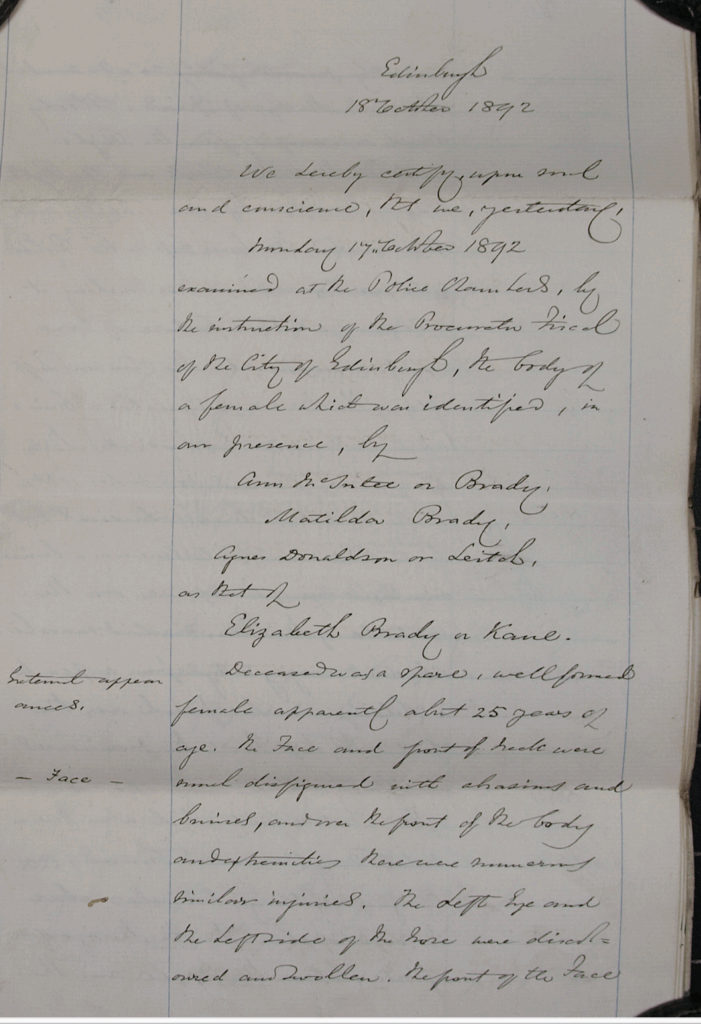 Edinburgh
18 October 1892
We hereby certify, upon soul
and conscience, that we, yesterday,
Monday 17th October 1892
examined at the Police Chambers, by
the instruction of the Procurator Fiscal
of the City of Edinburgh, the body of
a female which was identified, in
our presence, by
Ann McIntee or Brady,
Matilda Brady,
Agnes Donaldson or Leitch,
as that of
Elizabeth Brady or Kane.
Deceased was a spare, well formed
External appear
ances.
female apparently about 25 years of
age. The Face and front of neck were
- Face -
much disfigured with abrasions and
bruises, and over the front of the body
and extremities there were numerous
similar injuries. The Left Eye and
the Left side of the Nose were discol=
oured and swollen. The front of the Face